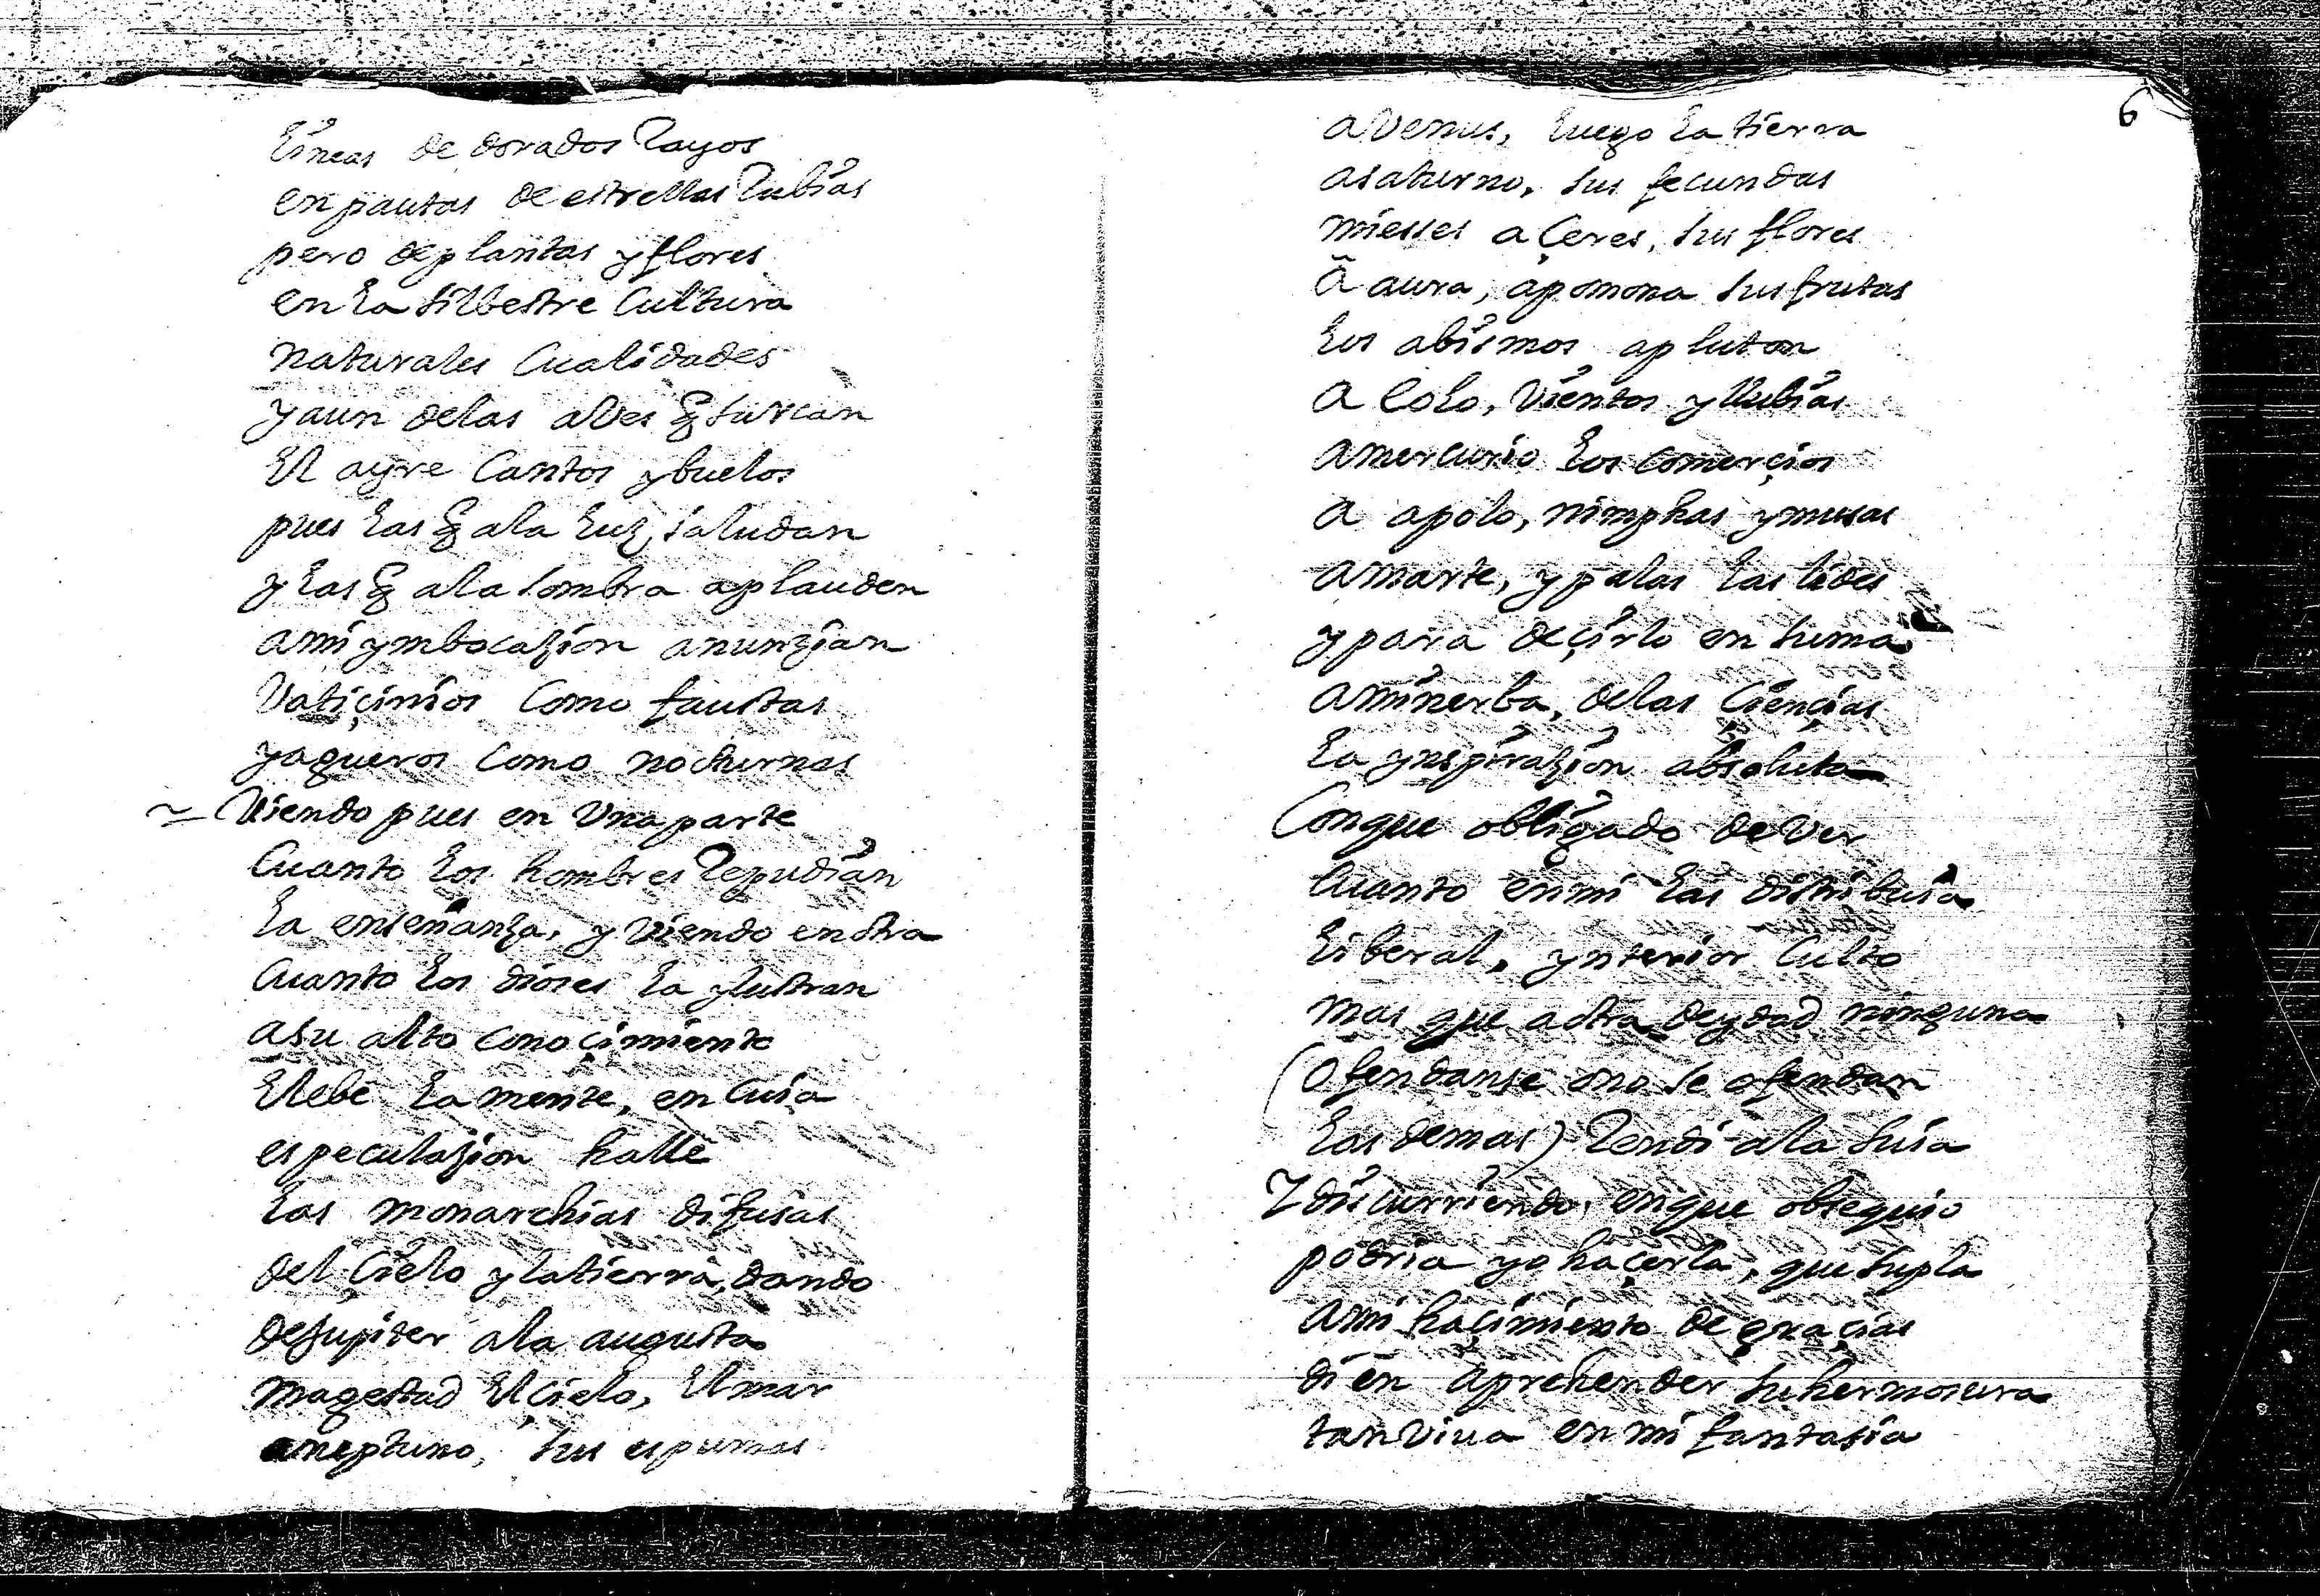 Lineas de dorados Rayos
en pautas de estrellas Rubias
pero de plantas y flores
en la silbestre Cultura
naturales Cualidades
y aun delas aves q̃ surcan
El ayre Cantos y buelos
pues las q̃ ala luz, saludan
y las q̃ ala sombra aplauden
a mi ymbocazion anunzian
Vatiçinios Como faustas
y agueros Como nocturnas
Viendo pues en Una parte
Cuanto los hombres Repudian
la enseñanza, y viendo en otra
Cuanto los dioses la ylustran
a su alto conoçimiento
Elebé la mente, en Cuia
especulazion hallé
las monarchias difusas
del Çielo y la tierra, dando
de Jupiter ala augusta
magestad El çielo, El mar
a neptuno, sus espumas
6
a Venus, luego la tierra
a saturno, sus fecundas
miesses a Çeres, sus flores
â aura, a pomona sus frutas
los abismos a pluton
a Eolo, Vientos y llubias
a mercurio los comerçios
a apolo, nimphas y musas
a marte, y palas las lides
y para deçirlo en suma
a minerba, delas Çiençias
la ynspirazion absoluta
Con que obligado de Ver
Cuanto en mi las distribuia
liberal, ynterior Culto
mas que a otra deydad ninguna
(Ofendanse o no se ofendan
las demas) Rendi a la suia
Y discurriendo, en que obsequio
podria yo haçerla, que supla
a mi haçimiento de graçias
di en aprehender su hermosura
tan viua en mi fantasia